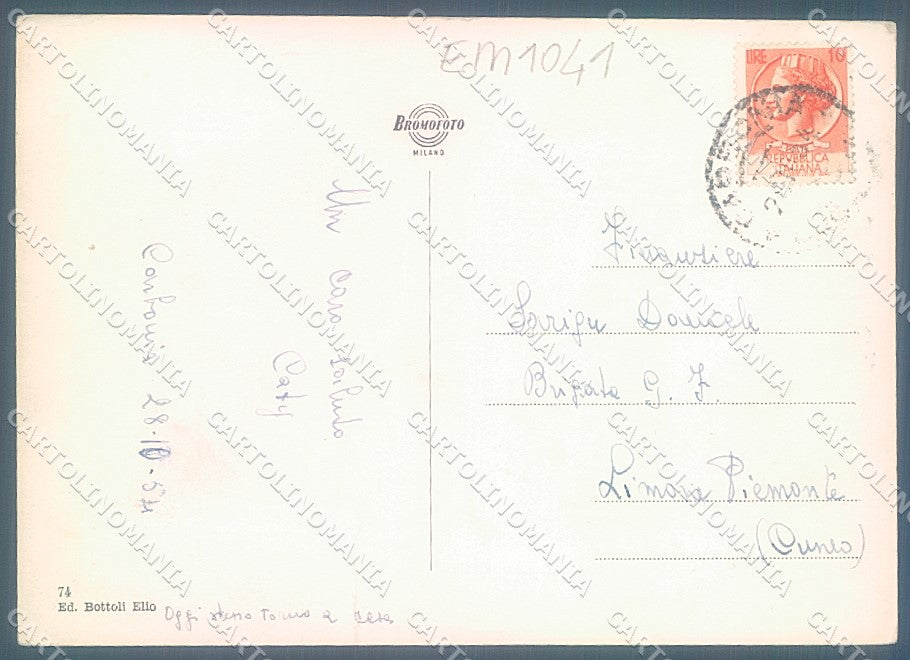 EM1041
BROMOFOTO
MILANO
LIRE 10
POSTE
REPVBBLICA
ITALIANA
Un
caro saluto
Caty
Carbonia 28.10.57
Finanziere
Daniele
Brigata G. F.
Limone Piemonte
(Cuneo)
74
Ed. Bottoli Elio
Oggi stesso torno a casa
CARTOLINOMANIA